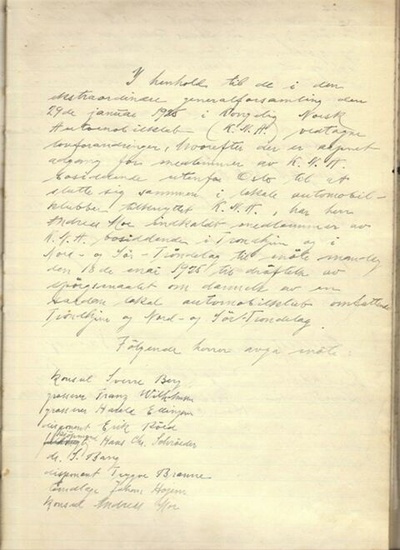 I henhold til de i den
ekstraordinære generalforsamling den
29de januar 1925 i Kongelig Norsk
Automobilklub (K.N.A.) vedtagne
lovforandringer, hvorefter der er aapnet
adgang for medlemmer av K.N.A.
bosiddende utenfor Oslo til at
slutte sig sammen i lokale automobil-
klubber tilknyttet K.N.A., har herr
Andreas Moe indkaldt medlemmer av
K.N.A. bosiddende i Trondhjem og i
Nord- og Sør-Trøndelag til møte mandag
den 18de mai 1925 til drøftelse av
spørgsmaalet om dannelse av en
saadan lokal automobilklub omfattende
Trondhjem og Nord- og Sør-Trøndelag.
Følgende herrer avga møte:
Konsul Sverre Berg
grosserer Franz Wilhelmsen
grosserer Harald Edingen
disponent Erik
Hans Chr. Schrøder
dr. S. Berg
disponent Trygve Bremne
Johan
Konsul Andreas Moe